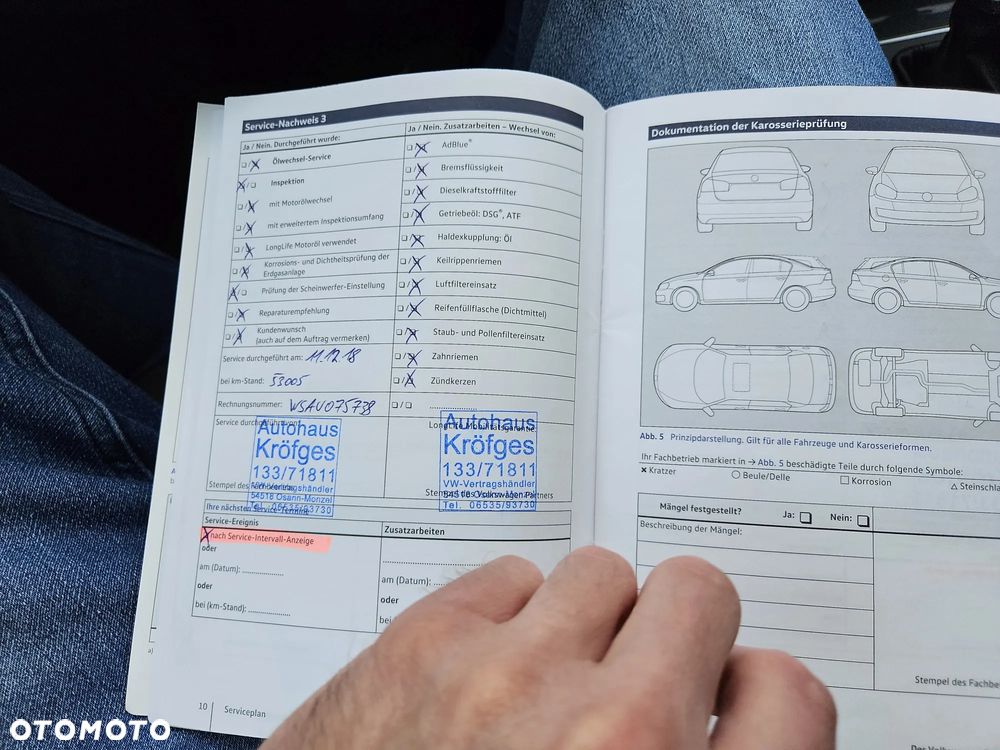 Service-Nachweis 3
Ja / Nein. Durchgeführt wurde:
Ölwechsel-Service
Inspektion
mit Motorölwechsel
mit erweitertem Inspektionsumfang
LongLife Motoröl verwendet
Korrosions- und Dichtheitsprüfung der
Erdgasanlage
Prüfung der Scheinwerfer-Einstellung
Reparaturempfehlung
Kundenwunsch
(auch auf dem Auftrag vermerken)
Service durchgeführt am: 11.12.18
bei km-Stand: 53005
Rechnungsnummer: WSAU075738
Service durchgeführt von:
Autohaus
Kröfges
133/71811
VW-Vertragshändler
54518 Osann-Monzel
Tel. 06535/93730
Stempel des
Ja / Nein. Zusatzarbeiten – Wechsel von:
AdBlue®
Bremsflüssigkeit
Dieselkraftstofffilter
Getriebeöl: DSG®, ATF
Haldexkupplung: Öl
Keilrippenriemen
Luftfiltereinsatz
Reifenfüllflasche (Dichtmittel)
Staub- und Pollenfiltereinsatz
Zahnriemen
Zündkerzen
LongLife Mobilitätsgarantie
Autohaus
Kröfges
133/71811
VW-Vertragshändler
54518 Osann-Monzel
Tel. 06535/93730
Stempel des Volkswagen Partners
Ihre nächsten Service-Termine
Service-Ereignis
nach Service-Intervall-Anzeige
oder
am (Datum):
oder
bei (km-Stand):
Zusatzarbeiten
am (Datum):
oder
bei
10 Serviceplan
Dokumentation der Karosserieprüfung
Abb. 5 Prinzipdarstellung. Gilt für alle Fahrzeuge und Karosserieformen.
Ihr Fachbetrieb markiert in → Abb. 5 beschädigte Teile durch folgende Symbole:
x Kratzer
Beule/Delle
Korrosion
Steinschla
Mängel festgestellt? Ja: Nein:
Beschreibung der Mängel:
Stempel des Fachbe
OTOMOTO